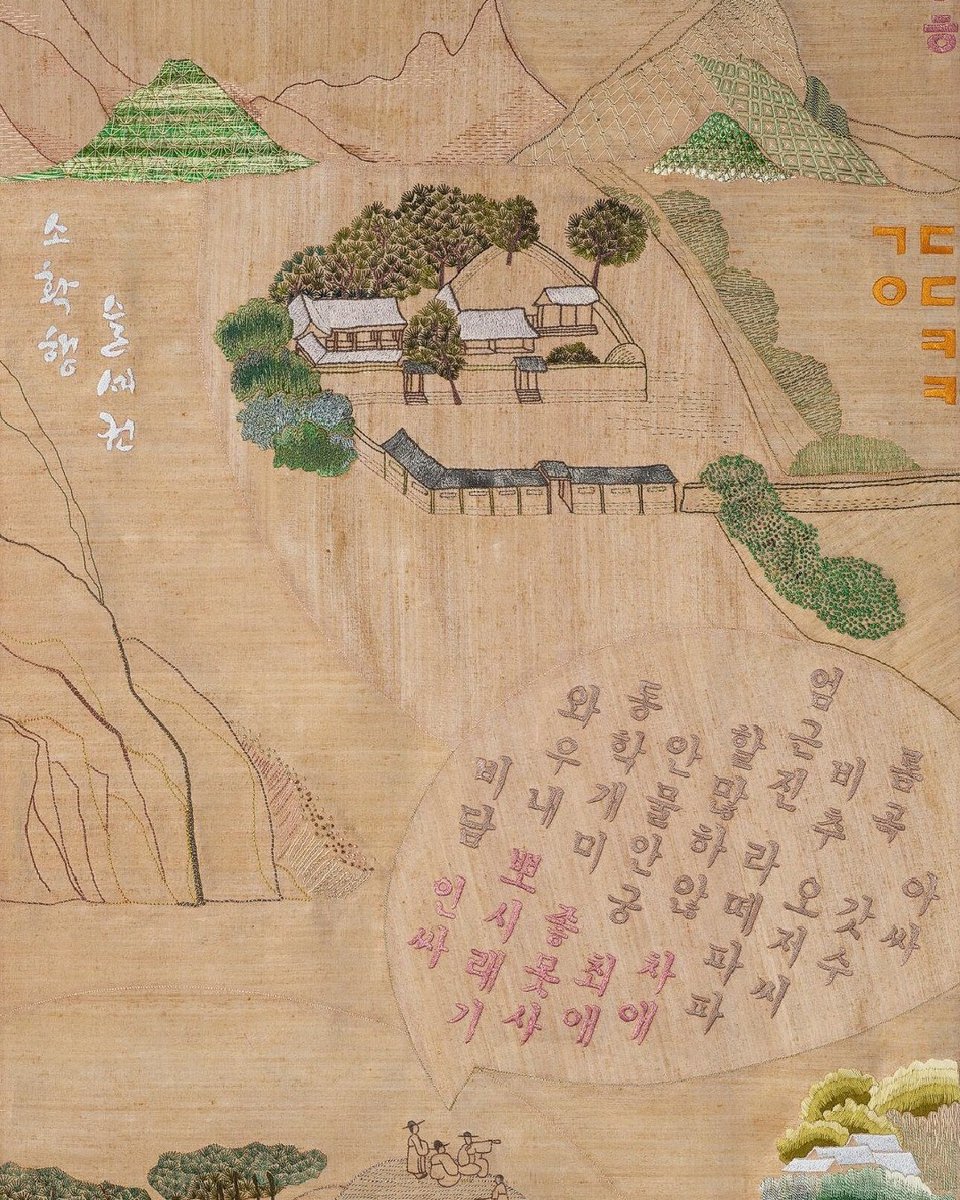 ㄷㄷㅋㅋ
ㄱㅇ
슬세권
소확행
띵곡
아싸
비추
갓수
엄근진
오저씨
할많하않
라떼파파
안물안궁
차애
동학개미
최애
와우내
좋못사
뽀시래기
비담
인싸